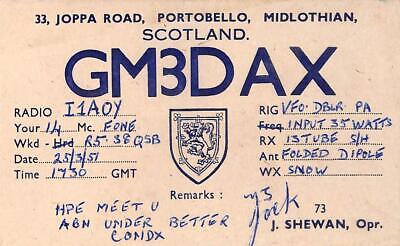 33, JOPPA ROAD, PORTOBELLO, MIDLOTHIAN,
SCOTLAND.
GM3DAX
RADIO I1AOY
Your 14 Mc. FONE
Wkd - Hrd R5 S8 QSB
Date 25/3/51
Time 1730 GMT
RIG VFO. DBLR PA
Freq INPUT 35 WATTS
RX 13 TUBE S/H
Ant FOLDED DIPOLE
WX SNOW
Remarks :
HPE MEET U
AGN UNDER BETTER
CONDX
73
Jock 73
J. SHEWAN, Opr.